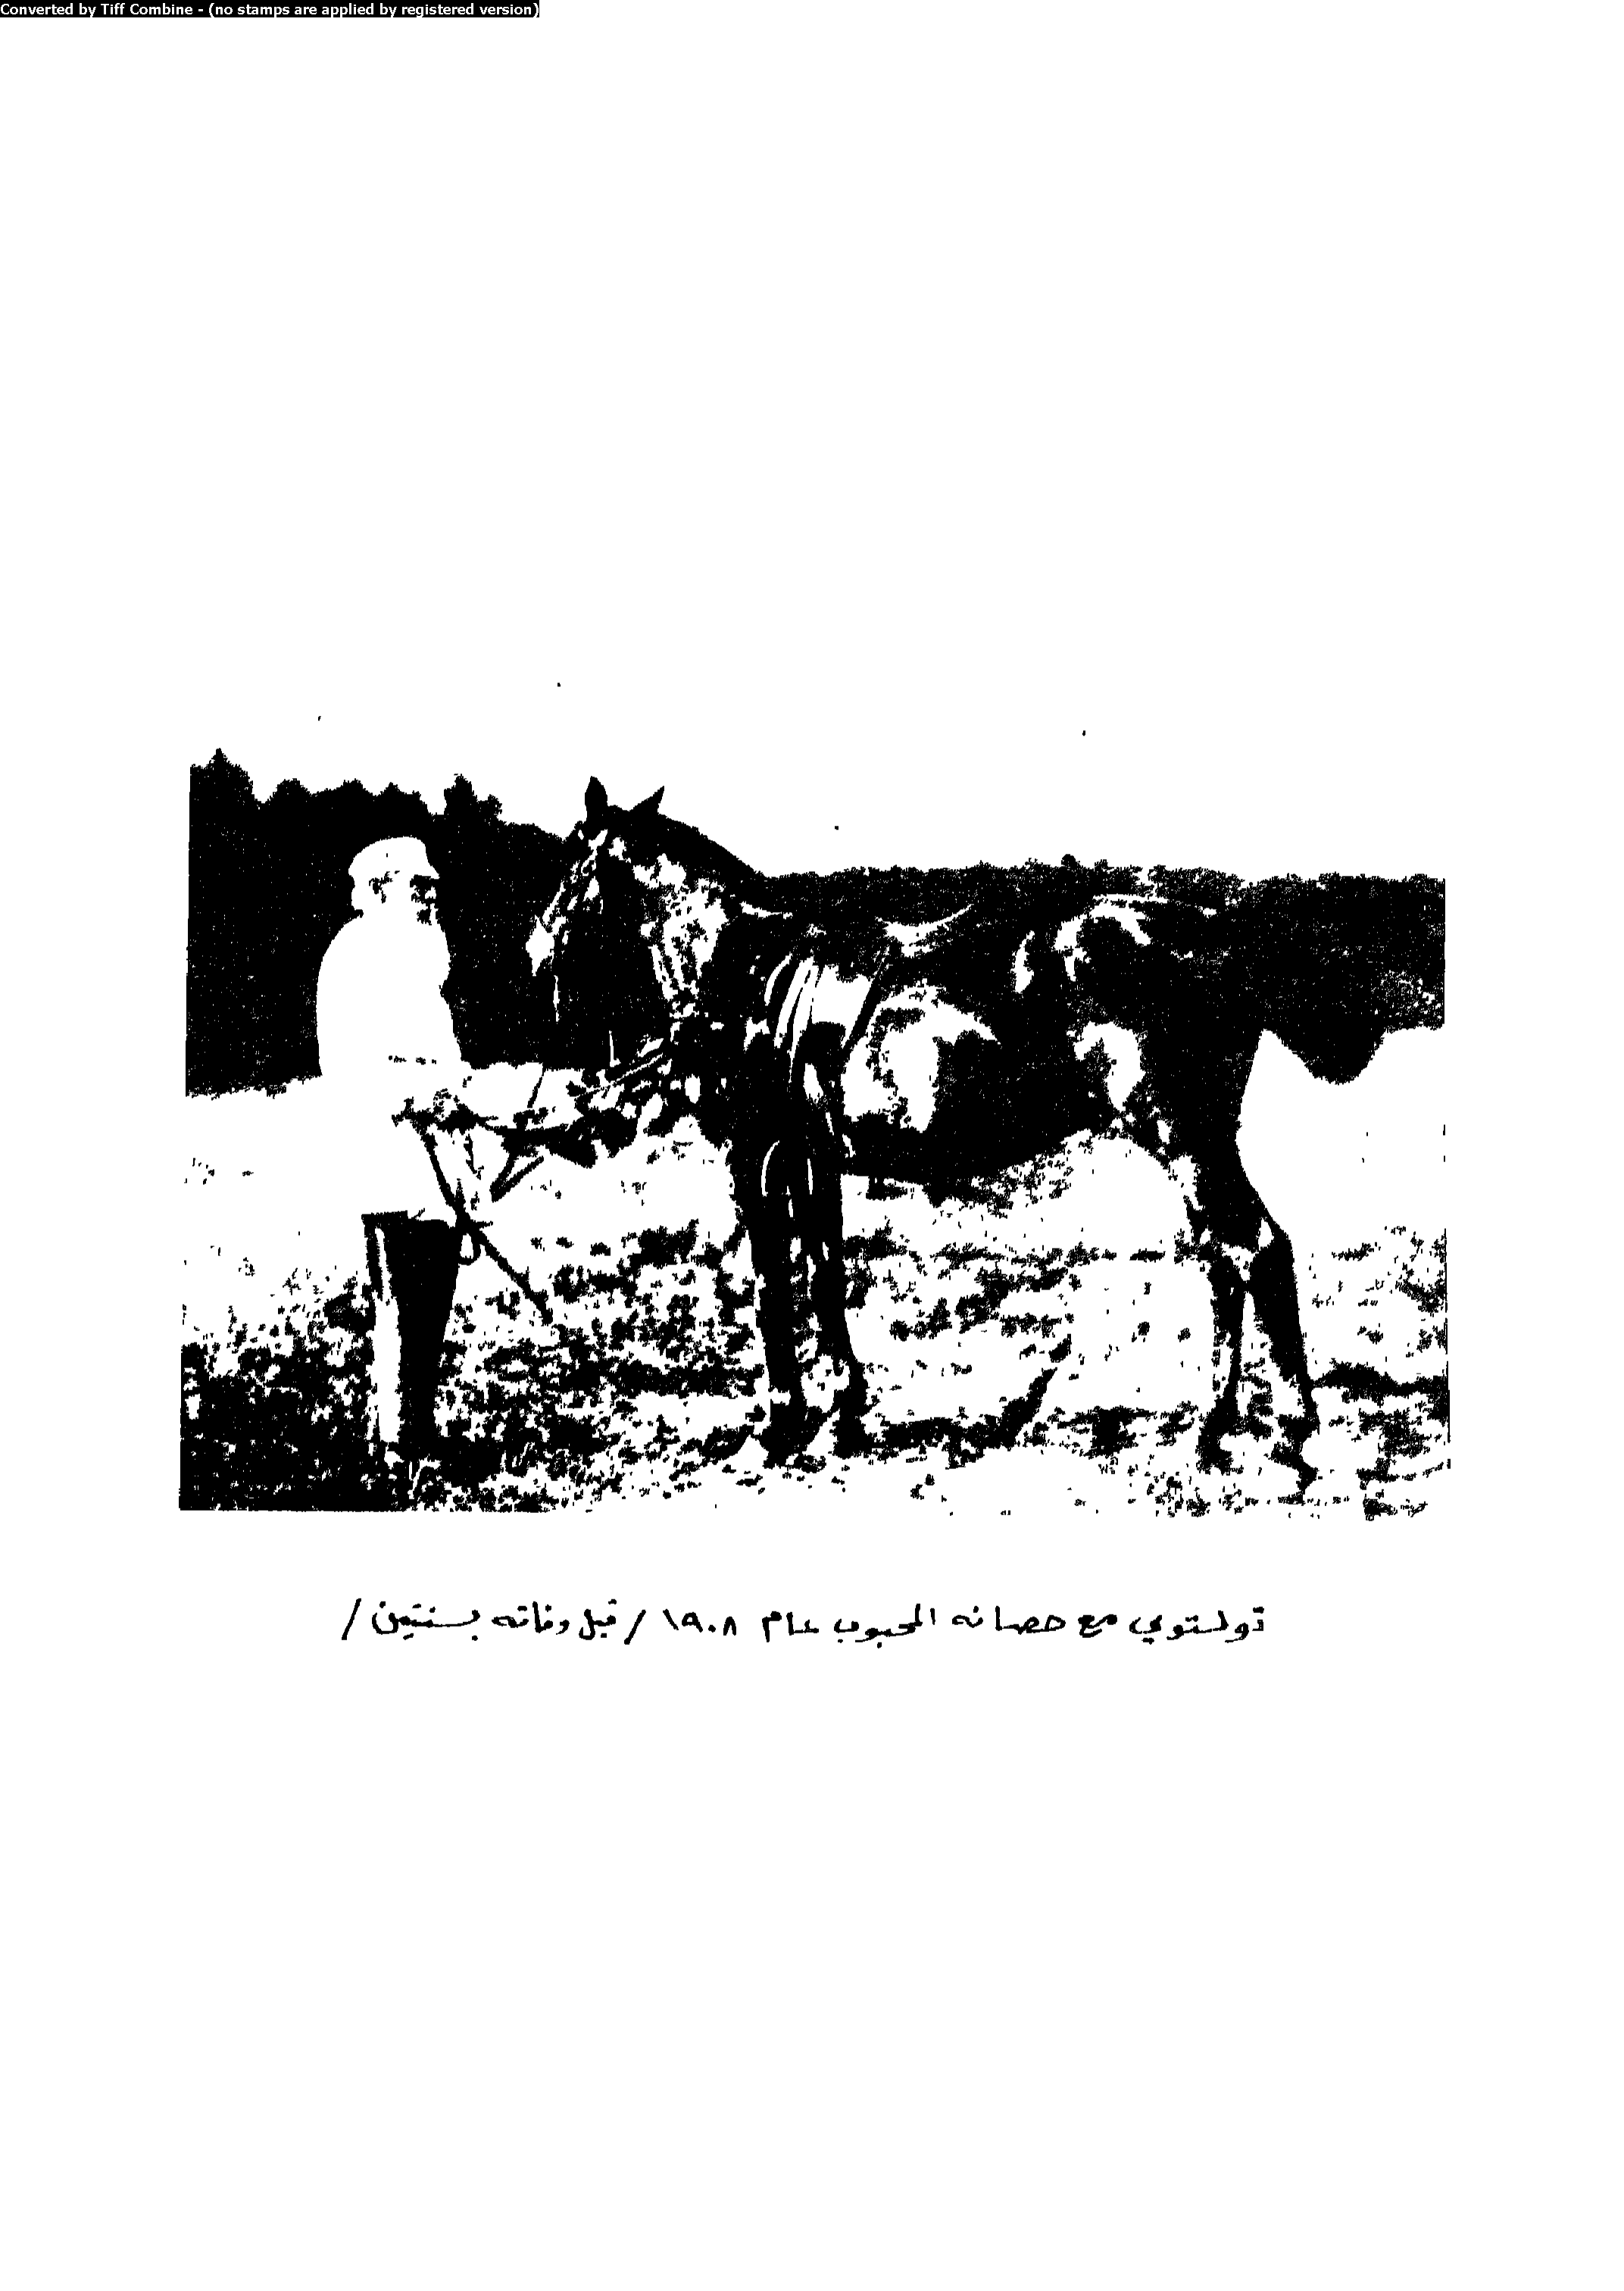 Converted by Tiff Combine - (no stamps are applied by registered version)
تولستوي مع حصانه المحبوب عام ١٩٠٨ / قبل وفاته بسنتين /